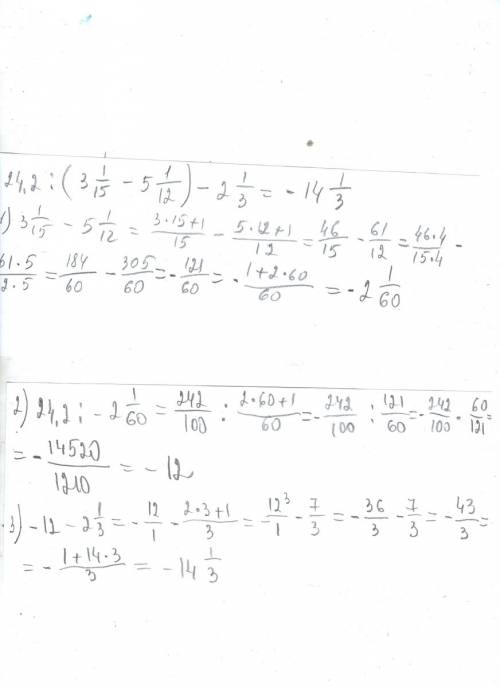 24,2 : (3 1/15 − 5 1/12) − 2 1/3 = − 14 1/3
1) 3 1/15 − 5 1/12 = (3·15+1)/15 − (5·12+1)/12 = 46/15 − 61/12 = (46·4)/(15·4) −
61·5/2·5 = 184/60 − 305/60 = − 121/60 = − (1+2·60)/60 = − 2 1/60
2) 24,2 : − 2 1/60 = 242/100 : (2·60+1)/60 = − 242/100 : 121/60 = − 242/100 · 60/121 =
= − 14520/1210 = − 12
3) − 12 − 2 1/3 = − 12/1 − (2·3+1)/3 = − 12³/1 − 7/3 = − 36/3 − 7/3 = − 43/3 =
= − (1+14·3)/3 = − 14 1/3